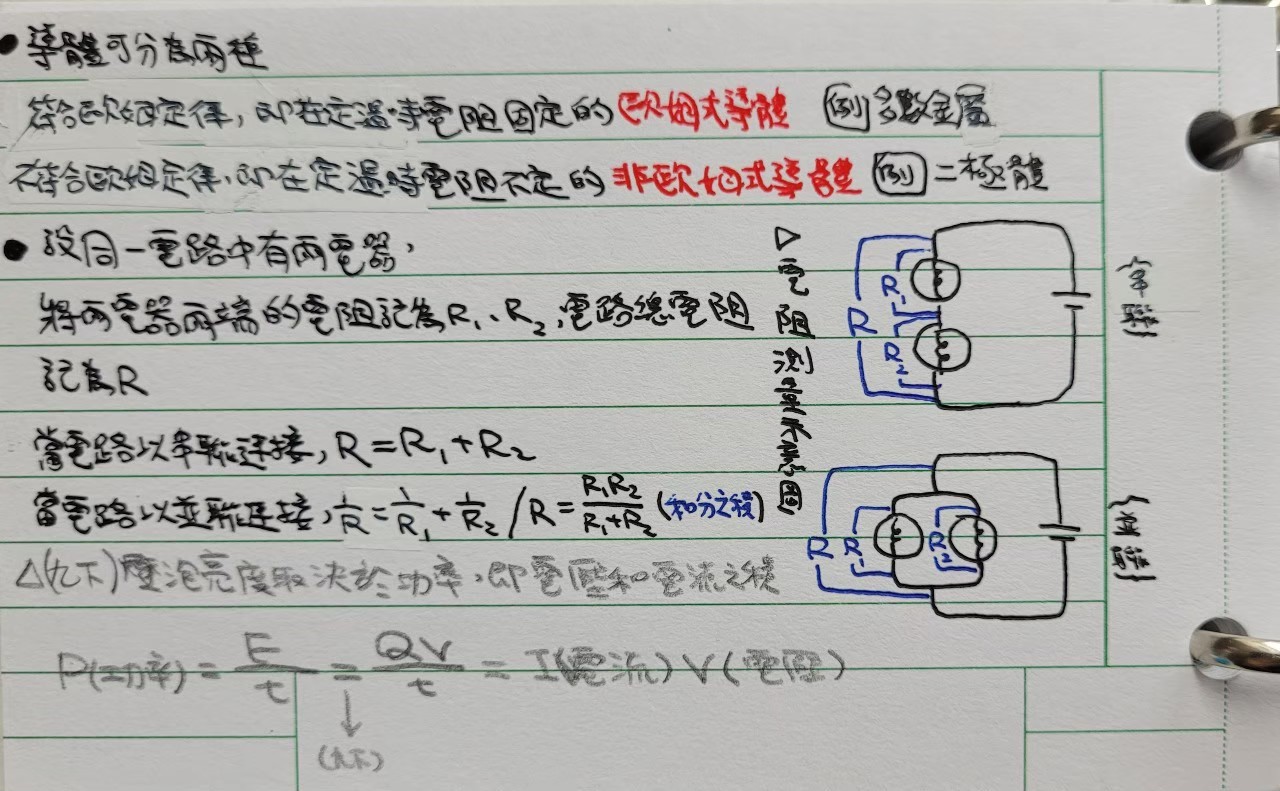 ● 導體可分為兩種
符合歐姆定律，即在定溫時電阻固定的歐姆式導體 例 多數金屬
不符合歐姆定律，即在定溫時電阻不定的非歐姆式導體 例 二極體
● 設同一電路中有兩電器，
將兩電器兩端的電阻記為R₁、R₂，電路總電阻
記為R
當電路以串聯連接，R=R₁+R₂
當電路以並聯連接，1/R=1/R₁+1/R₂ / R=R₁R₂/(R₁+R₂) (和分之積)
△(九下)電泡亮度取決於功率，即電壓和電流之積
P(功率)=E/t=QV/t=I(電流)V(電壓)
↓
(九下)
▷電阻測量示意圖
R R₁ R₂
(串聯)
R R₁ R₂
(並聯)